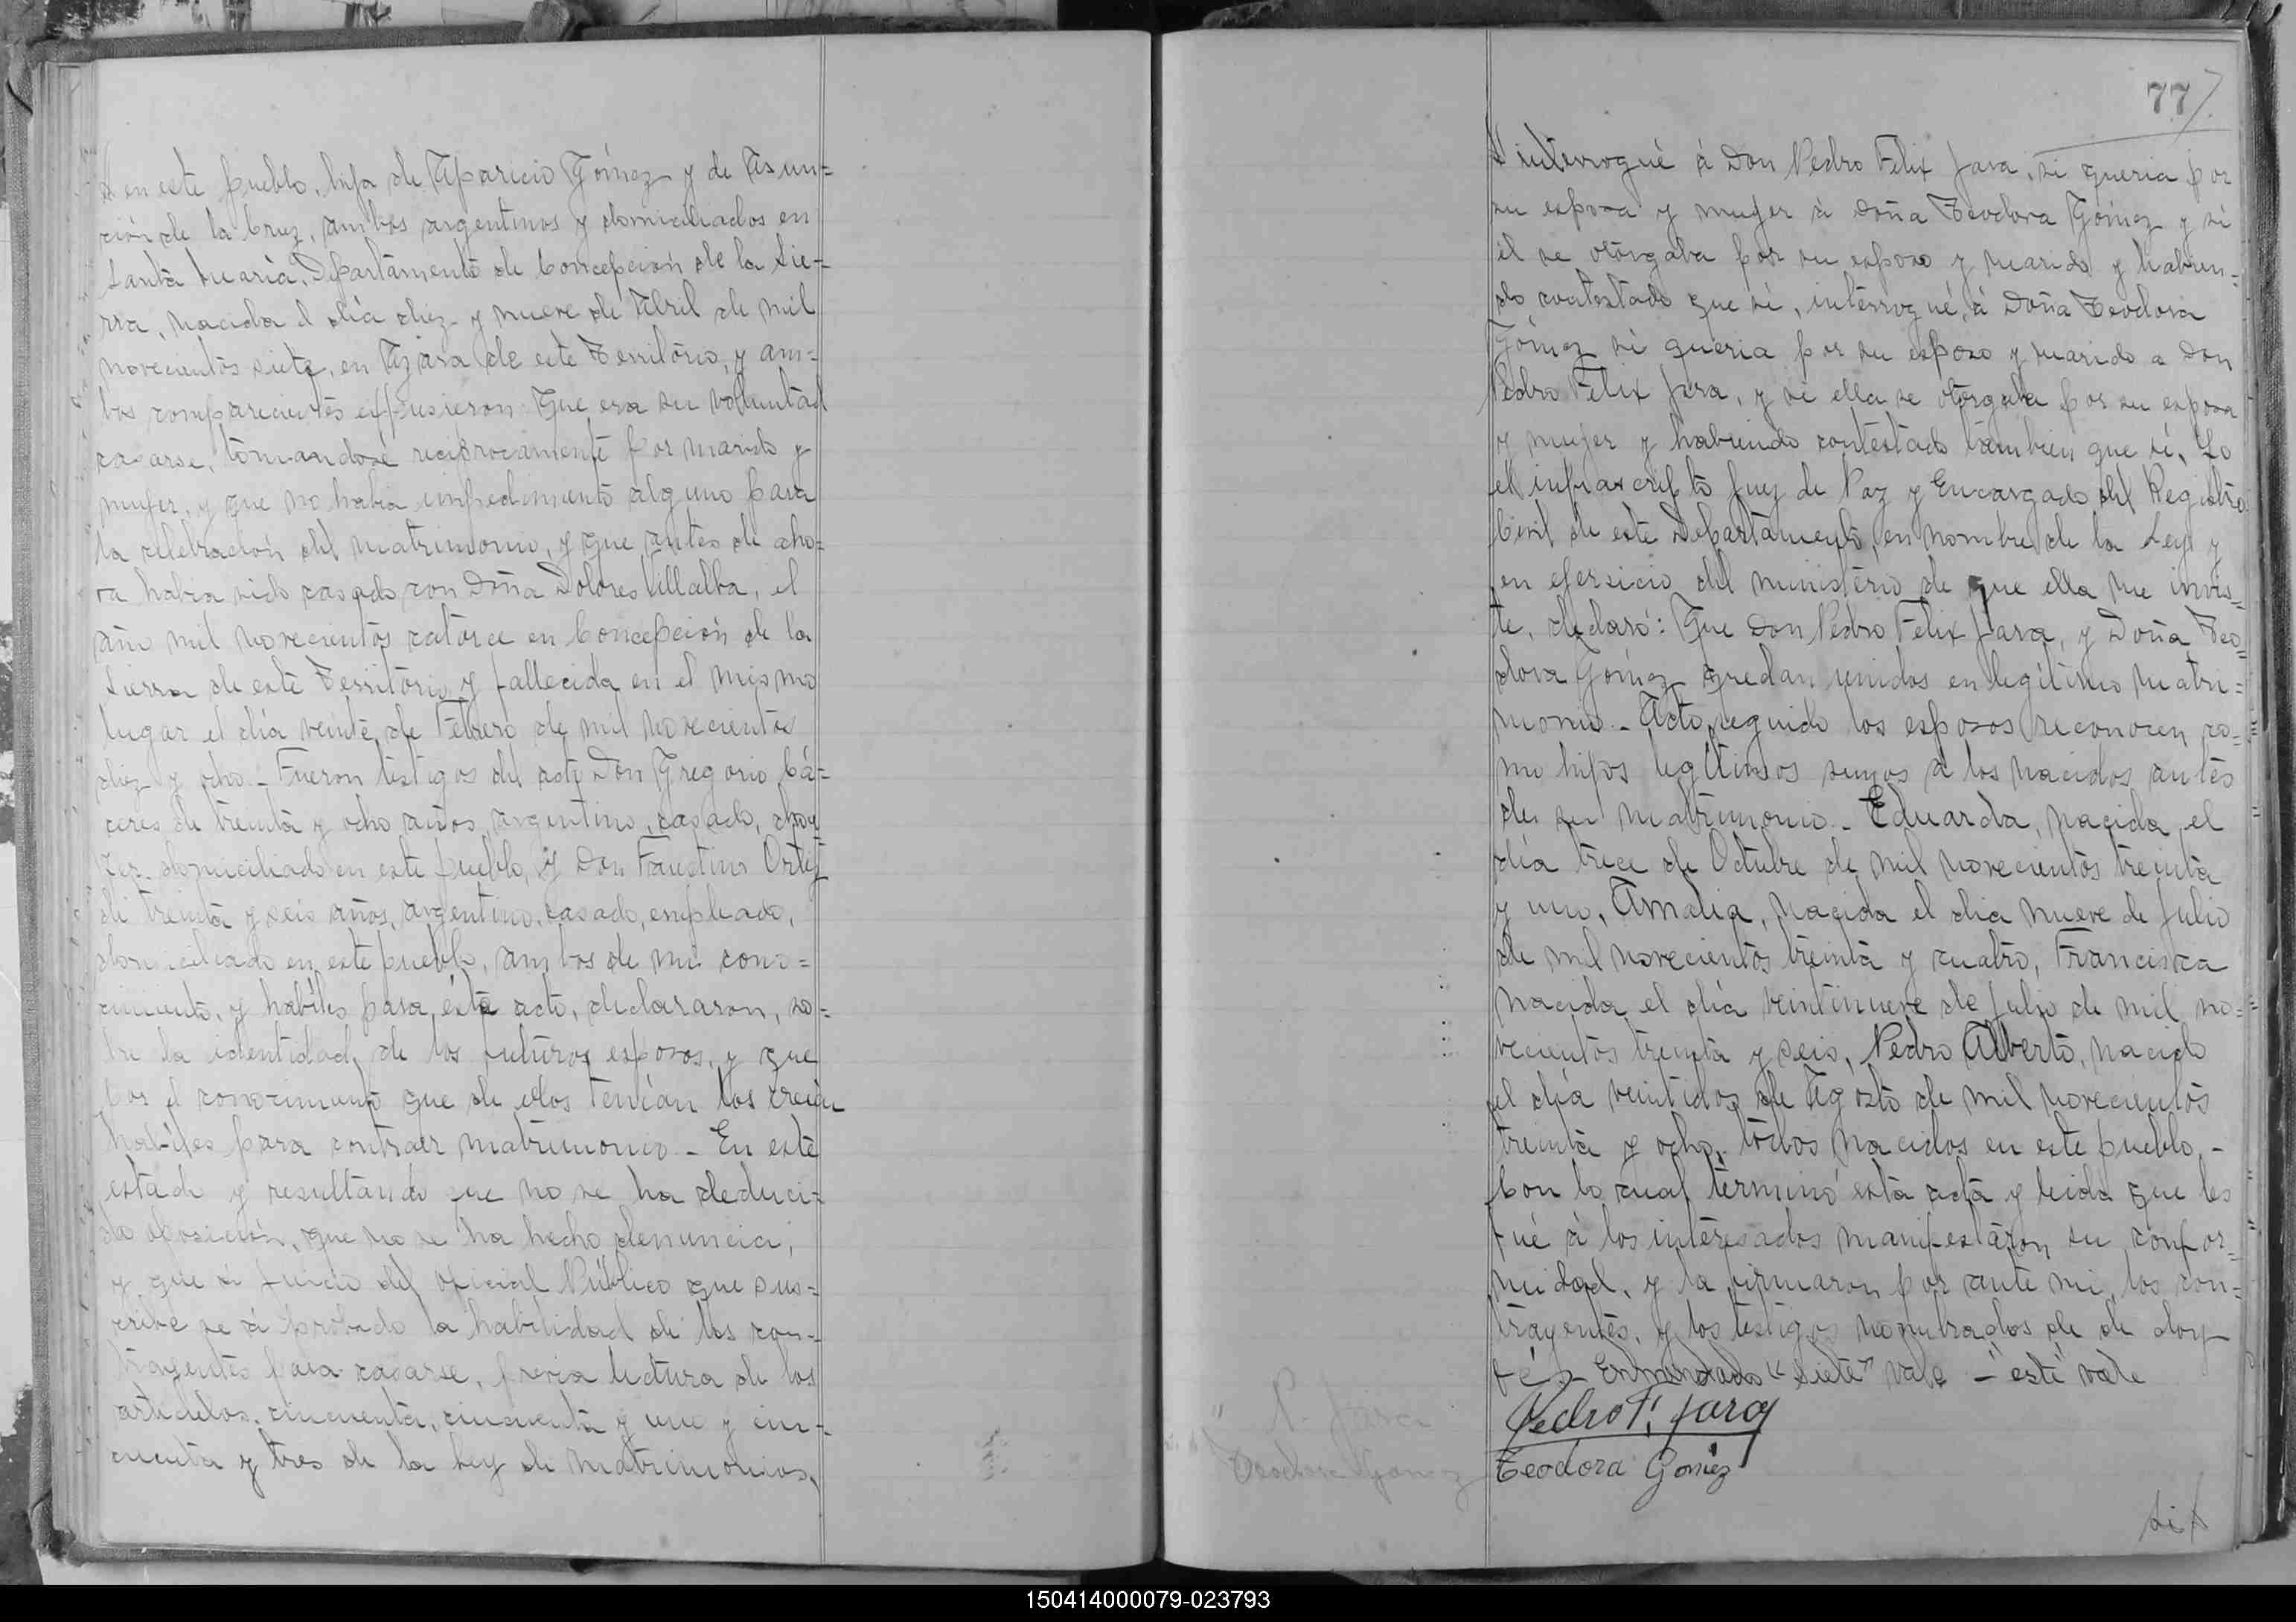 en este pueblo, hija de Aparicio Gómez y de Asun=
ción de la Cruz, ambos argentinos y domiciliados en
Santa Maria, Departamento de Concepción de la Sie=
rra, nacida el día diez y nueve de Abril de mil
novecientos siete, en Azara de este Territorio, y am=
bos comparecientes expusieron: Que era su voluntad
casarse, tomandose reciprocamente por marido y
mujer, y que no habia impedimento alguno para
la celebración del matrimonio, y que antes de aho=
ra habia sido casado con Doña Dolores Villalba, el
año mil novecientos catorce en Concepción de la
Sierra de este Territorio y fallecida en el mismo
lugar el día veinte de Febrero de mil novecientos
diez y ocho.- Fueron testigos del acto Don Gregorio Cá=
ceres de treinta y ocho años, argentino, casado, chou
fer, domiciliado en este pueblo, y Don Faustino Ortiz
de treinta y seis años, argentino, casado, empleado,
domiciliado en este pueblo, ambos de mi cono=
cimiento, y habiles para éste acto, declararon, so=
bre la identidad de los futuros esposos, y que
por el conocimiento que de ellos tenían los creían
habiles para contraer matrimonio.- En este
estado y resultando que no se ha deduci=
do oposición, que no se ha hecho denuncia,
y que a juicio del oficial Público que sus=
cribe se á probado la habilidad de los con=
trayentes para casarse, previa lectura de los
articulos, cincuenta, cincuenta y uno y cin=
cuenta y tres de la Ley de Matrimonios,
77
interrogué á Don Pedro Felix Jara, si queria por
su esposa y mujer á Doña Teodora Gómez y si
él se otorgaba por su esposo y marido y habien=
do contestado que sí, interrogué, á Doña Teodora
Gómez si queria por su esposo y marido a Don
Pedro Felix Jara, y si ella se otorgaba por su esposa
y mujer y habiendo contestado tambien que sí, Yo
el infrascripto Juez de Paz y Encargado del Registro
Civil de este Departamento, en nombre de la Ley y
en ejersicio del ministerio de que ella me invis=
te, declaró: Que Don Pedro Felix Jara, y Doña Teo=
dora Gómez quedan unidos en legítimo matri=
monio.- Acto seguido los esposos reconocen co=
mo hijos legítimos suyos a los nacidos antes
de su matrimonio.- Eduarda, nacida el
día trece de Octubre de mil novecientos treinta
y uno, Amalia, nacida el día nueve de Julio
de mil novecientos treinta y cuatro, Francisca
nacida el día veintinueve de Julio de mil no=
vecientos treinta y seis, Pedro Alberto, nacido
el día veintidos de Agosto de mil novecientos
treinta y ocho, todos nacidos en este pueblo.-
Con lo cual terminó esta acta y leida que les
fué á los interesados manifestaron su confor=
midad, y la firmaron por ante mi, los con=
trayentes, y los testigos nombrados de de doy
fé.- Enmendado "siete" vale - éste vale
P. Jara
Pedro F. Jara
Teodora Gomez
Teodora Goméz
150414000079-023793